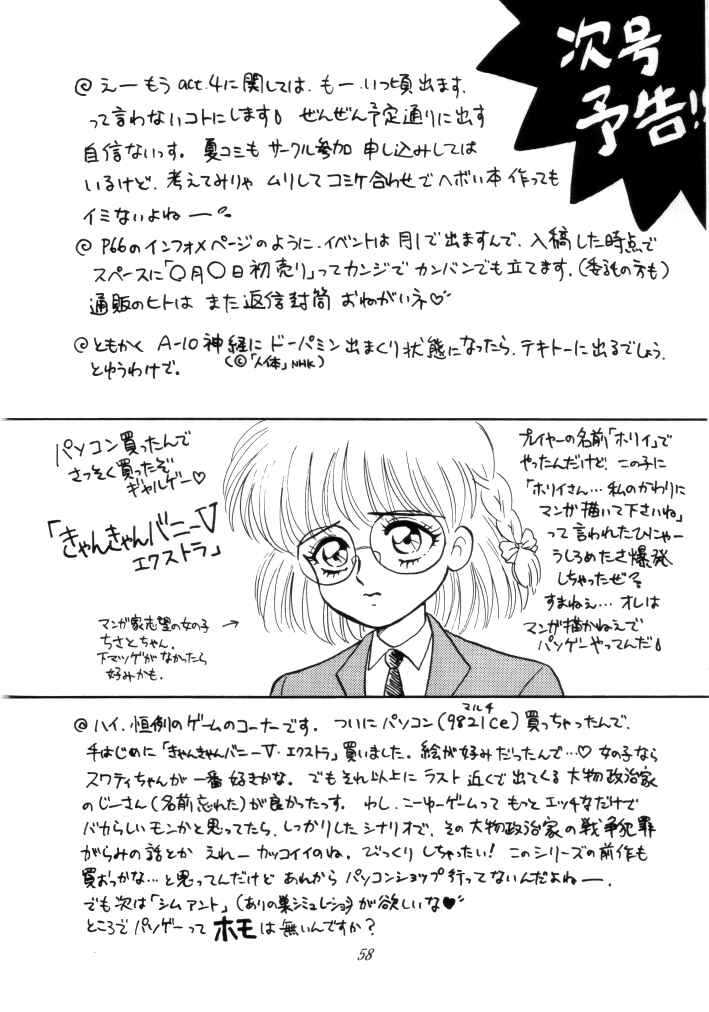 次号
予告!!
@ えーもう act.4に関しては、もー、いつ頃出ます、
って言わないコトにします。ぜんぜん予定通りに出す
自信ないっす。夏コミも サークル参加 申し込みしては
いるけど、考えてみりゃ ムリしてコミケ合わせでヘボい本 作っても
イミないよねー。
@ P66のインフォメページのように、イベントは 月1で出ますんで、入稿した時点で
スペースに「〇月〇日初売り」ってカンジで カンバンでも立てます。(委託の方も)
通販のヒトは また返信封筒 おねがいネ♡
@ ともかく A-10神経に ドーパミン出まくり状態になったら、テキトーに出るでしょう。
とゆうわけで。
(©「人体」NHK)
パソコン買ったんで
さっそく買ったぞ
ギャルゲー♡
「きゃんきゃんバニーV
エクストラ」
マンガ家志望の女の子 →
ちさとちゃん。
下マツゲがなかったら
好みかも。
プレイヤーの名前「ホリイ」で
やったんだけど、この子に
「ホリイさん…私のかわりに
マンガ描いて下さいね」
って言われたひにゃー
うしろめたさ爆発
しちゃったぜ?
すまねぇ…オレは
マンガ描かねえで
パソゲーやってんだ
@ ハイ、恒例のゲームのコーナーです。ついに パソコン(9821Ce)買っちゃったんで、
マルチ
手はじめに「きゃんきゃんバニーV・エクストラ」買いました。絵が好みだったんで…♡ 女の子なら
スワティちゃんが 一番 好きかな。でもそれ以上に ラスト 近くで出てくる 大物政治家
のじーさん(名前忘れた)が良かったっす。わし、こーゆーゲームって もっと エッチなだけで
バカらしいモンかと思ってたら、しっかりしたシナリオで、その大物政治家の戦争犯罪
がらみの話とか えれー カッコイイのね。びっくりしちゃったい! このシリーズの前作も
買おっかな…と思ってんだけど あれから パソコンショップ行ってないんだよねー。
でも次は「シムアント」(ありの巣シミュレーション)が欲しいな♥
ところで パソゲーって ホモは無いんですか?
58